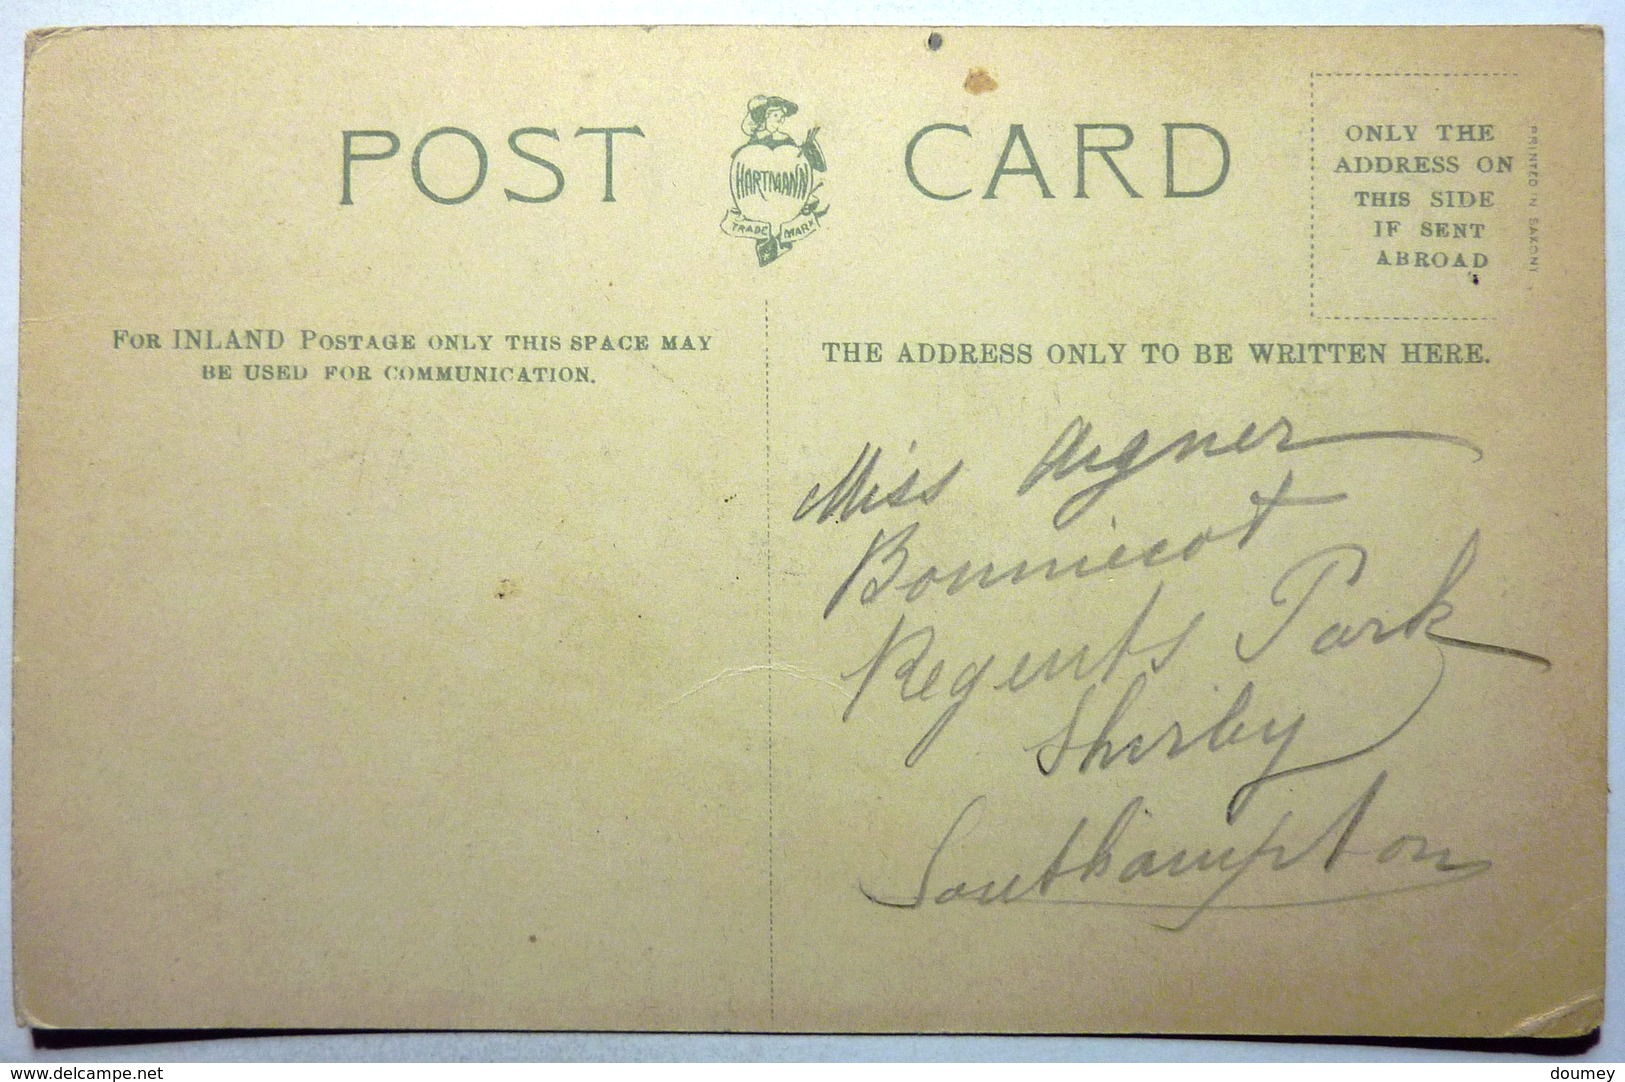 POST CARD
HARTMANN
TRADE MARK
ONLY THE
ADDRESS ON
THIS SIDE
IF SENT
ABROAD
PRINTED IN SAXONY
FOR INLAND POSTAGE ONLY THIS SPACE MAY
BE USED FOR COMMUNICATION.
THE ADDRESS ONLY TO BE WRITTEN HERE.
Miss Aigner
Bonniecot
Regents Park
Shirley
Southampton
delcampe.net
doumey